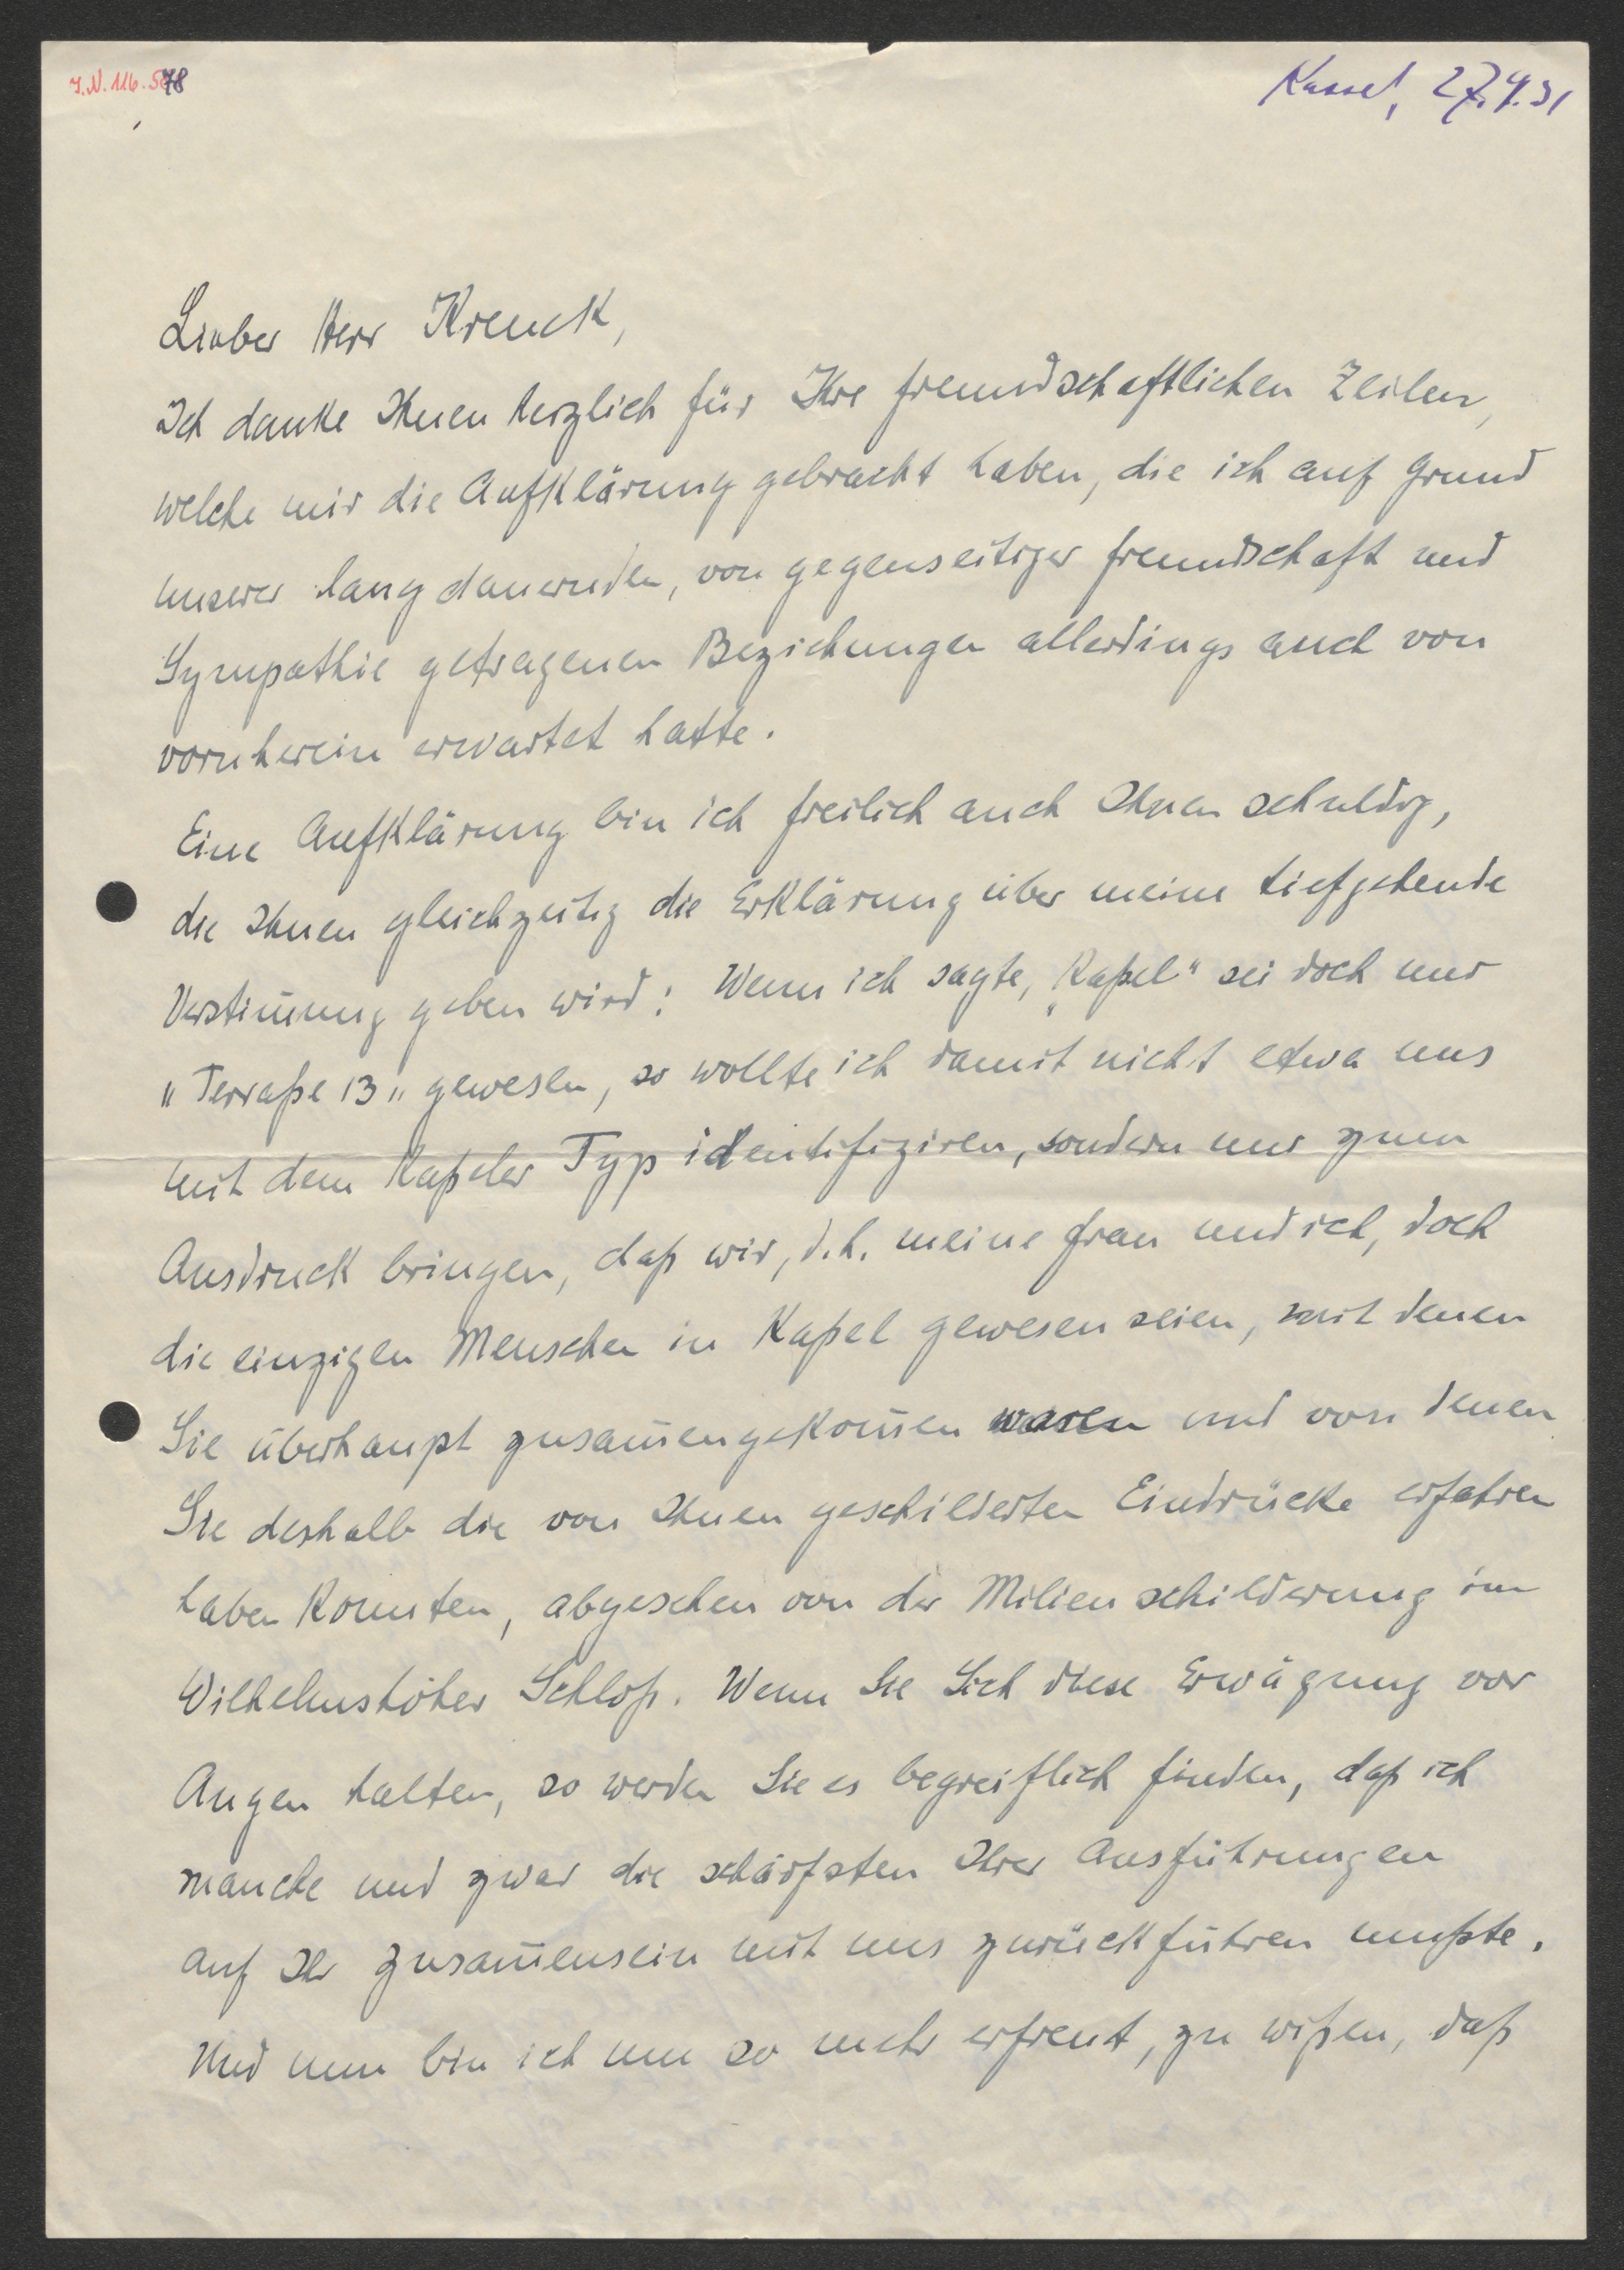 J.N. 116.578
Kassel, 27.4.31
Lieber Herr Krenek,
Ich danke Ihnen herzlich für Ihre freundschaftlichen Zeilen,
welche mir die Aufklärung gebracht haben, die ich auf Grund
unserer langdauernden, von gegenseitiger Freundschaft und
Sympathie getragenen Beziehungen allerdings auch von
vornherein erwartet hatte.
Eine Aufklärung bin ich freilich auch Ihnen schuldig,
die Ihnen gleichzeitig die Erklärung über meine tiefgehende
Verstim̄ung geben wird: Wenn ich sagte, „Kaßel" sei doch nur
„Terraße 13" gewesen, so wollte ich damit nicht etwa uns
mit dem Kaßeler Typ identifiziren, sondern nur zum
Ausdruck bringen, daß wir, d.h. meine Frau und ich, doch
die einzigen Menschen in Kaßel gewesen seien, mit denen
Sie überhaupt zusam̄engekom̄en waren und von denen
Sie deshalb die von Ihnen geschilderten Eindrücke erfahren
haben konnten, abgesehen von der Milieuschilderung im
Wilhelmshöher Schloß. Wenn Sie Sich diese Erwägung vor
Augen halten, so werden Sie es begreiflich finden, daß ich
manche und zwar die schärfsten Ihrer Ausführungen
auf Ihr Zusam̄ensein mit uns zurückführen mußte.
Und nun bin ich um so mehr erfreut, zu wißen, daß